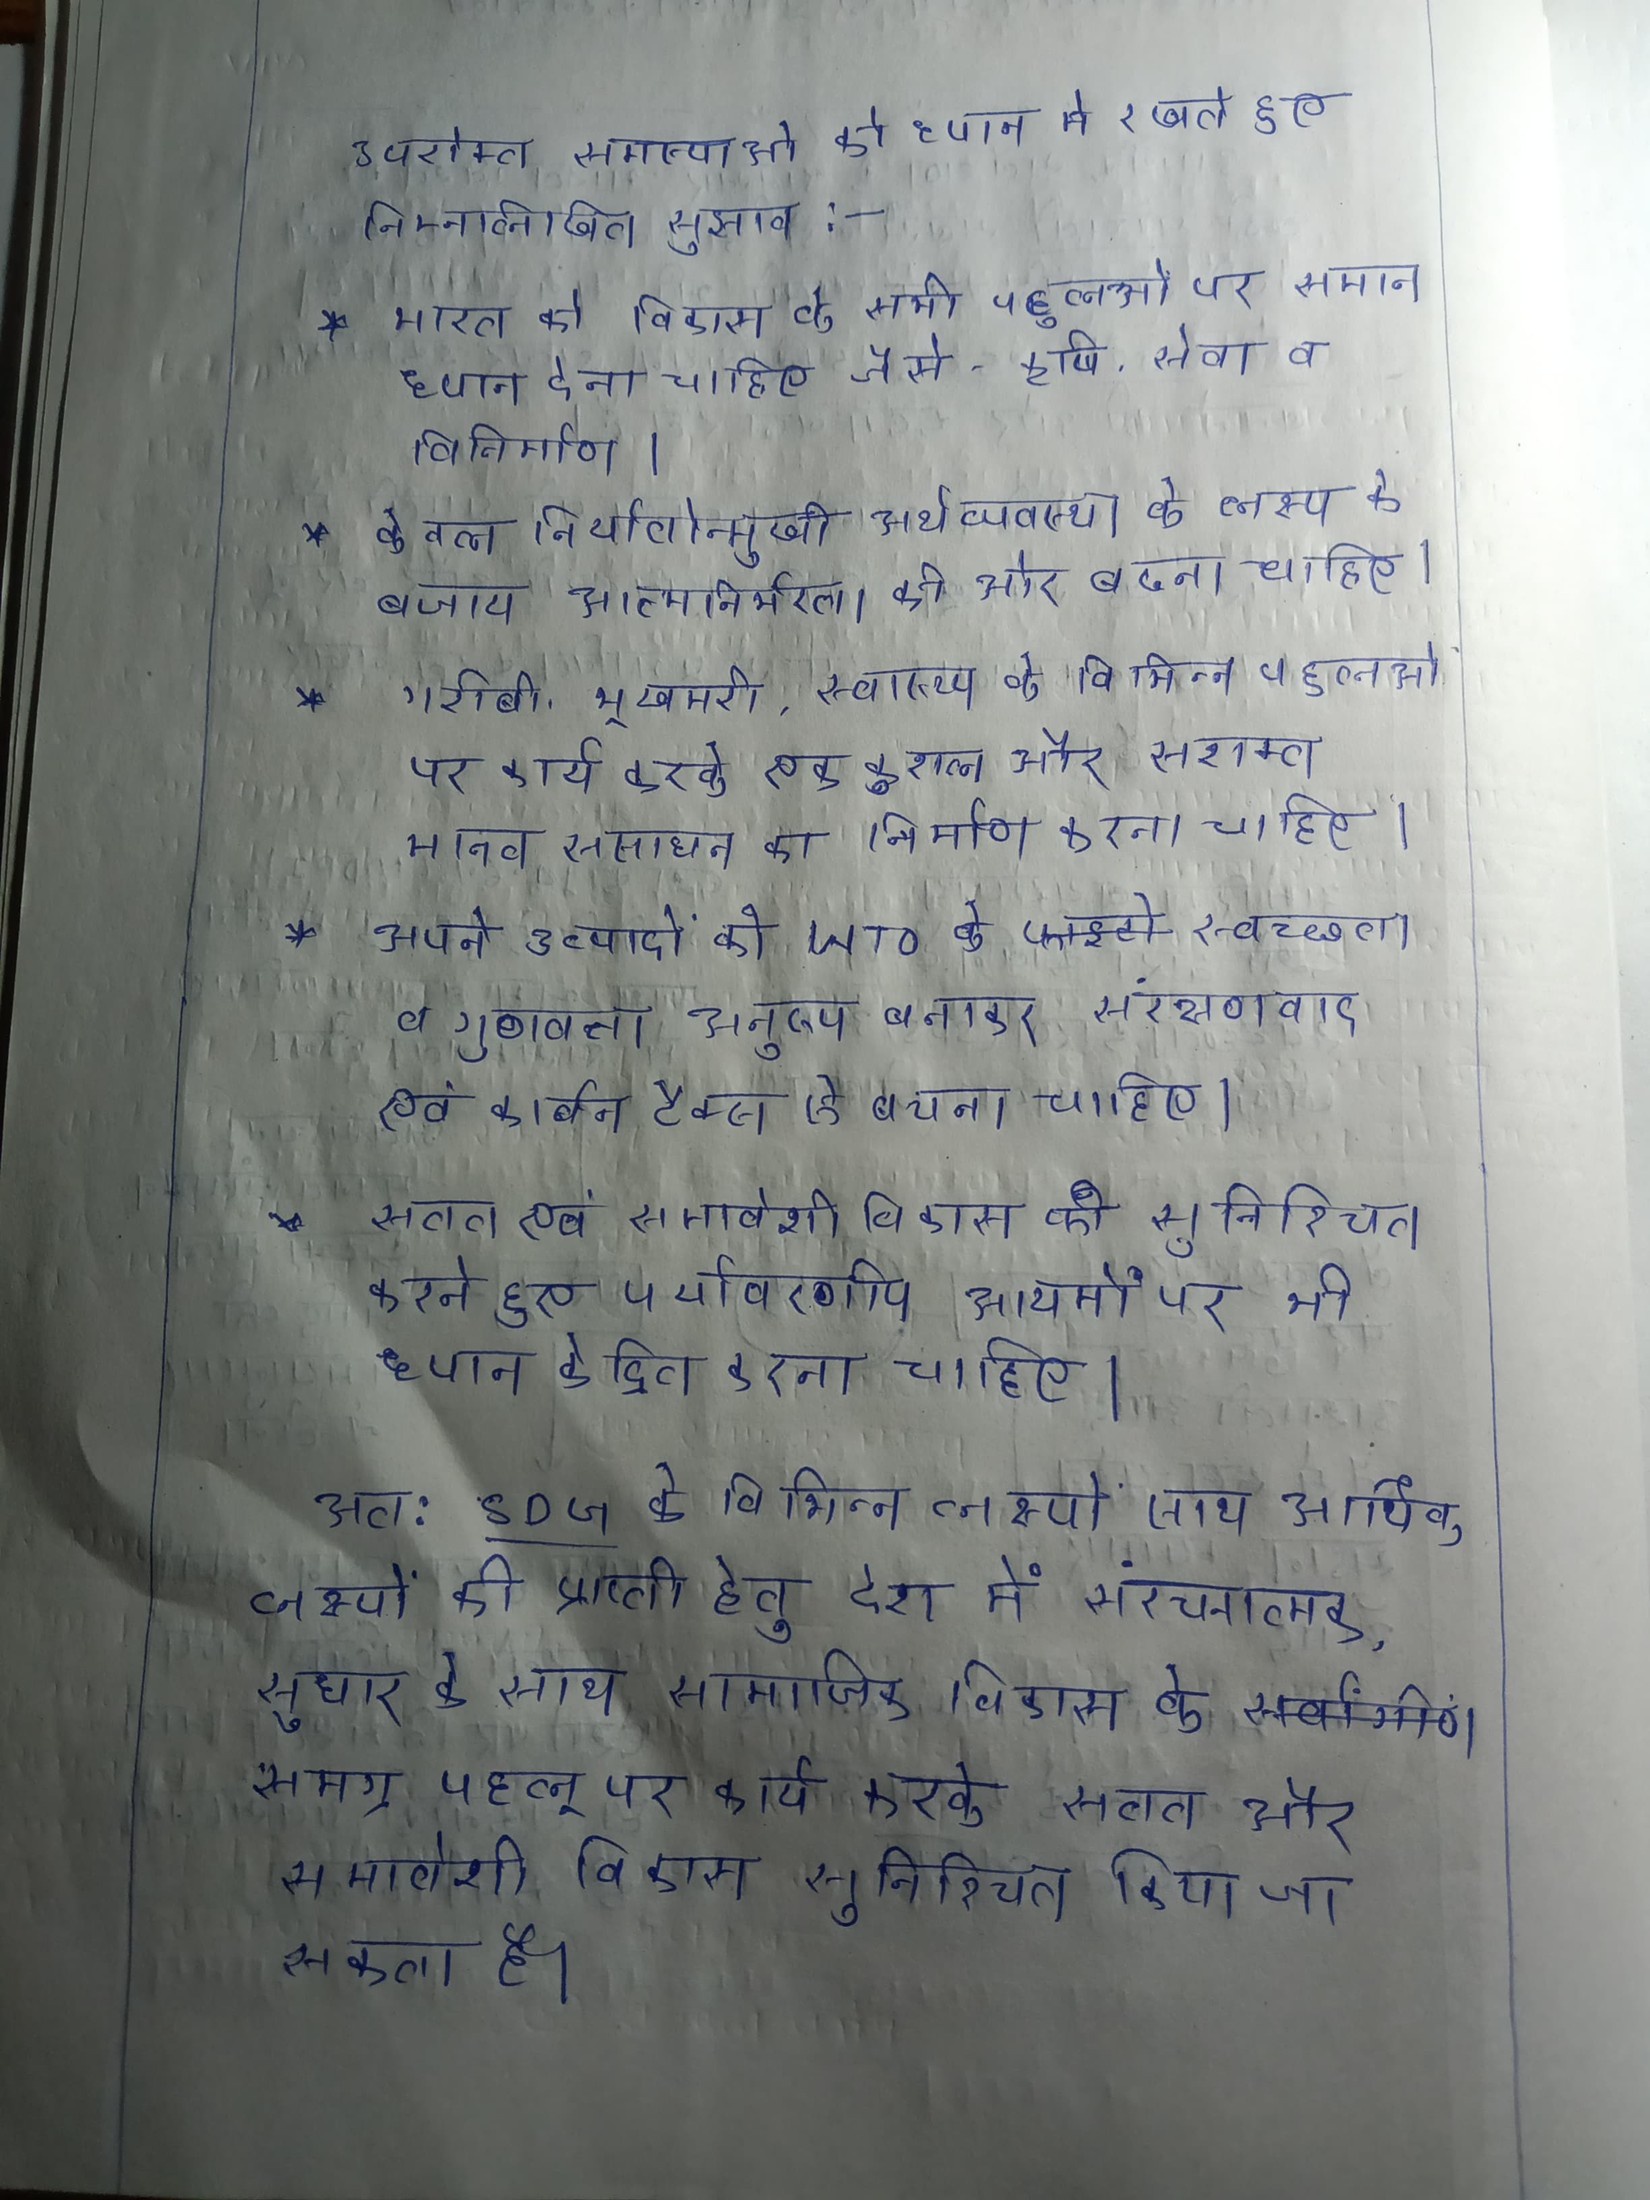 उपरोक्त समस्याओ को ध्यान मे रखते हुए
निम्नलिखित सुझाव :-
* भारत को विकास के सभी पहुलओं पर समान
ध्यान देना चाहिए जैसे - कृषि, सेवा व
विनिर्माण ।
* केवल निर्यातोन्मुखी अर्थव्यवस्था के लक्ष्य के
बजाय आत्मनिर्भरता की और बढना चाहिए ।
* गरीबी, भूखमरी, स्वास्थ्य के विभिन्न पहुलओ
पर कार्य करके एक कुशल और सशक्त
मानव ससाधन का निर्माण करना चाहिए ।
* अपने उत्पादों को WTO के फाइटो स्वच्छता
व गुणवत्ता अनुरूप बनाकर संरक्षणवाद
एवं कार्बन टैक्स से बचना चाहिए ।
* सतत एवं समावेशी विकास की सुनिश्चित
करने हुए पर्यावरणीय आयमों पर भी
ध्यान केद्रित करना चाहिए ।
अतः SDG के विभिन्न लक्ष्यों साथ आर्थिक
लक्ष्यों की प्राप्ती हेतु देश में संरचनात्मक,
सुधार के साथ सामाजिक विकास के सर्वांगीण
समग्र पहलू पर कार्य करके सतत और
समावेशी विकास सुनिश्चित किया जा
सकता है।